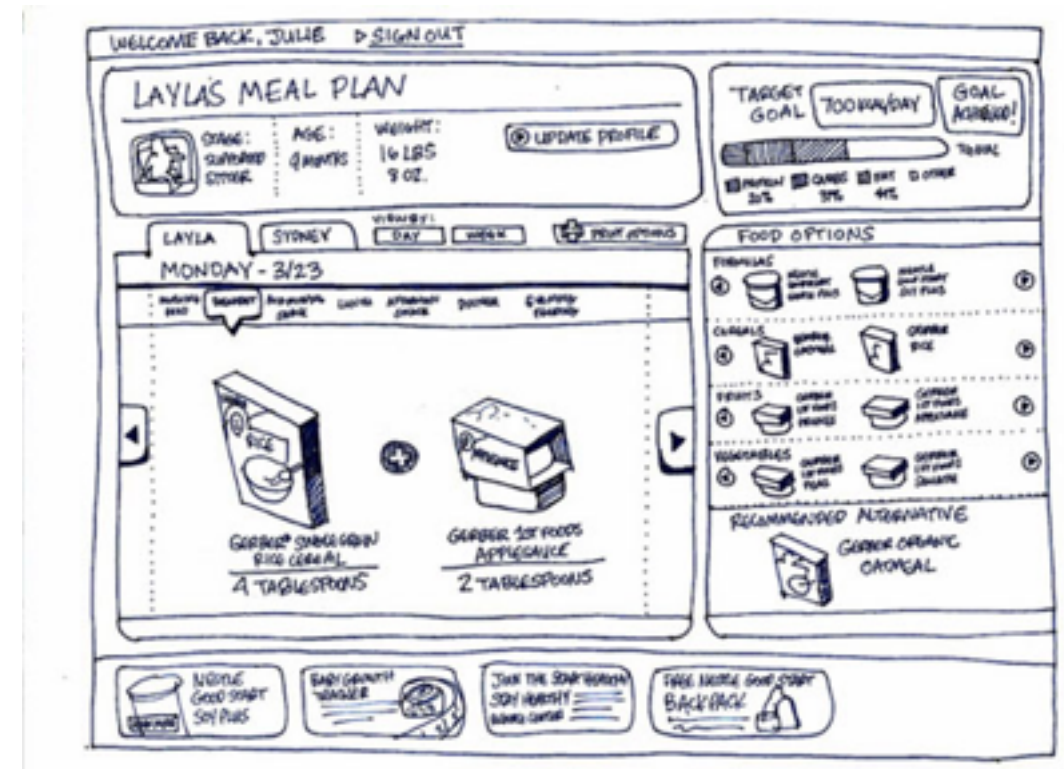 WELCOME BACK, JULIE ▷ SIGN OUT
LAYLA'S MEAL PLAN
STAGE:
SUPPORTED
SITTER
AGE:
9 MONTHS
WEIGHT:
16 LBS
8 OZ.
UPDATE PROFILE
TARGET
GOAL
700 KCAL/DAY
GOAL
ACHIEVED!
PROTEIN
CARBS
OTHER
LAYLA
SYDNEY
VIEW BY:
DAY
WEEK
PRINT OPTIONS
MONDAY - 3/23
DINNER
RICE
APPLESAUCE
GERBER® SINGLE GRAIN
RICE CEREAL
4 TABLESPOONS
GERBER 1ST FOODS
APPLESAUCE
2 TABLESPOONS
FOOD OPTIONS
FORMULAS
CEREALS
GERBER
OATMEAL
GERBER
RICE
FRUITS
GERBER
1ST FOODS
PRUNES
GERBER
1ST FOODS
APPLESAUCE
VEGETABLES
GERBER
1ST FOODS
PEAS
GERBER
1ST FOODS
SQUASH
RECOMMENDED ALTERNATIVE
GERBER ORGANIC
OATMEAL
NESTLE
GOOD START
SOY PLUS
BABY GROWTH
JOIN THE START HEALTHY
STAY HEALTHY
CENTER
FREE NESTLE GOOD START
BACKPACK